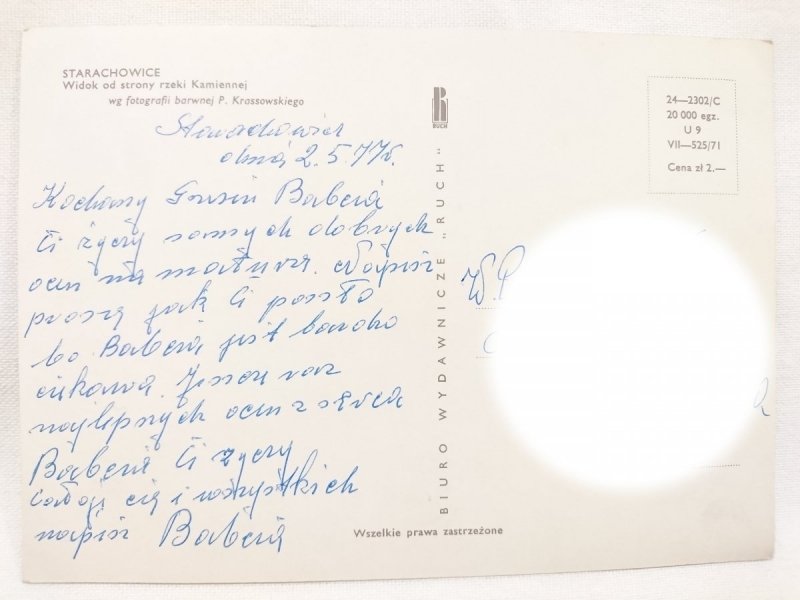 STARACHOWICE
Widok od strony rzeki Kamiennej
wg fotografii barwnej P. Krassowskiego
Starachowice
dnia 2.5.77r.
Kochany Babcia
Ci życzy samych dobrych
ocen na maturze. Napisz
proszę jak Ci poszło
bo Babcia jest bardzo
ciekawa. Jeszcze raz
najlepszych ocen z serca
Babcia Ci życzy
całuję cię i wszystkich
napisz Babcia
RUCH
BIURO WYDAWNICZE „RUCH"
24—2302/C
20 000 egz.
U 9
VII—525/71
Cena zł 2.—
W.P
Wszelkie prawa zastrzeżone